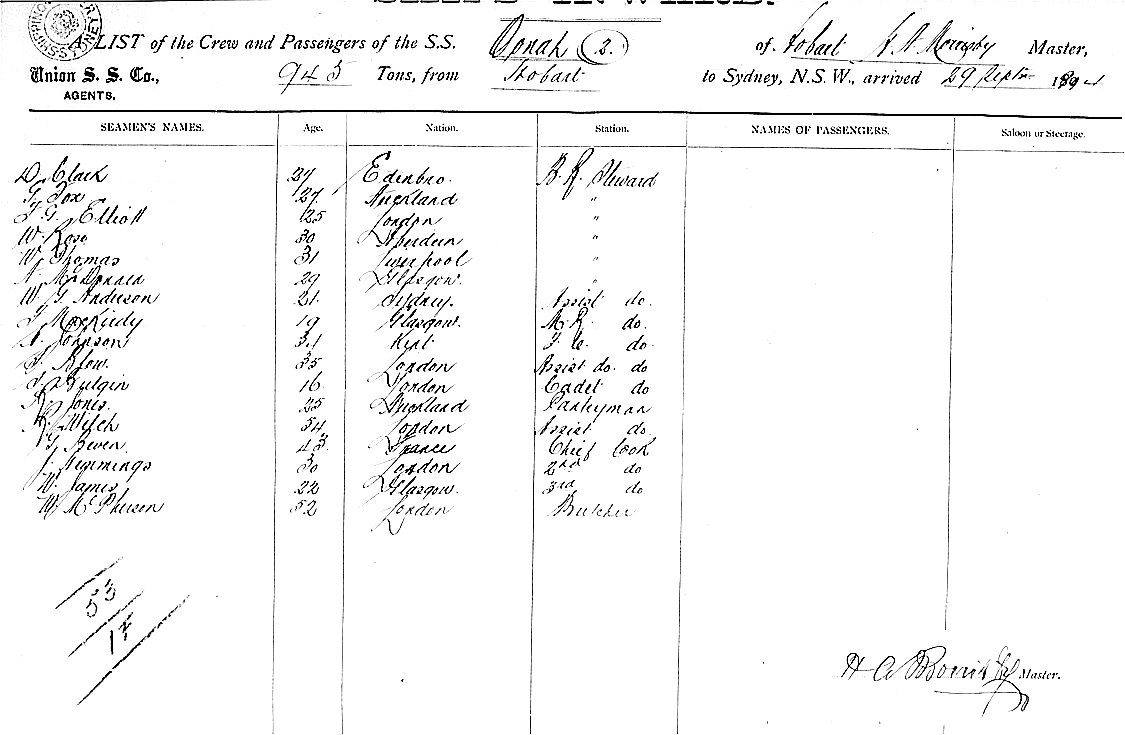 SHIPPING SYDNEY
A LIST of the Crew and Passengers of the S.S. Oonah (2) of Hobart Master,
Union S. S. Co., AGENTS. 945 Tons, from Hobart to Sydney, N.S.W., arrived 29 Septr 1894
SEAMEN'S NAMES. Age. Nation. Station. NAMES OF PASSENGERS. Saloon or Steerage.
D. Clark 27 Edenbro. B. R. Steward
G. Fox 27 Auckland "
G. Elliott 25 London "
W. Rose 30 Aberdeen "
W. Thomas 31 Liverpool "
McDonald 29 Glasgow. "
W. G. Anderson 21 Sydney. Assist do.
19 Glasgow. M. R. do.
Johnson 34 Kent do.
Blow. 35 London Assist do. do
Bulgin 16 London Cadet do
Jones. 25 Auckland Pantryman
54 London Assist do.
Beven 43 France Chief Cook
J. Hemmings 30 London 2nd do
W. James 22 Glasgow. 3rd do
W. McPherson 52 London Butcher
53
17
H A Master.